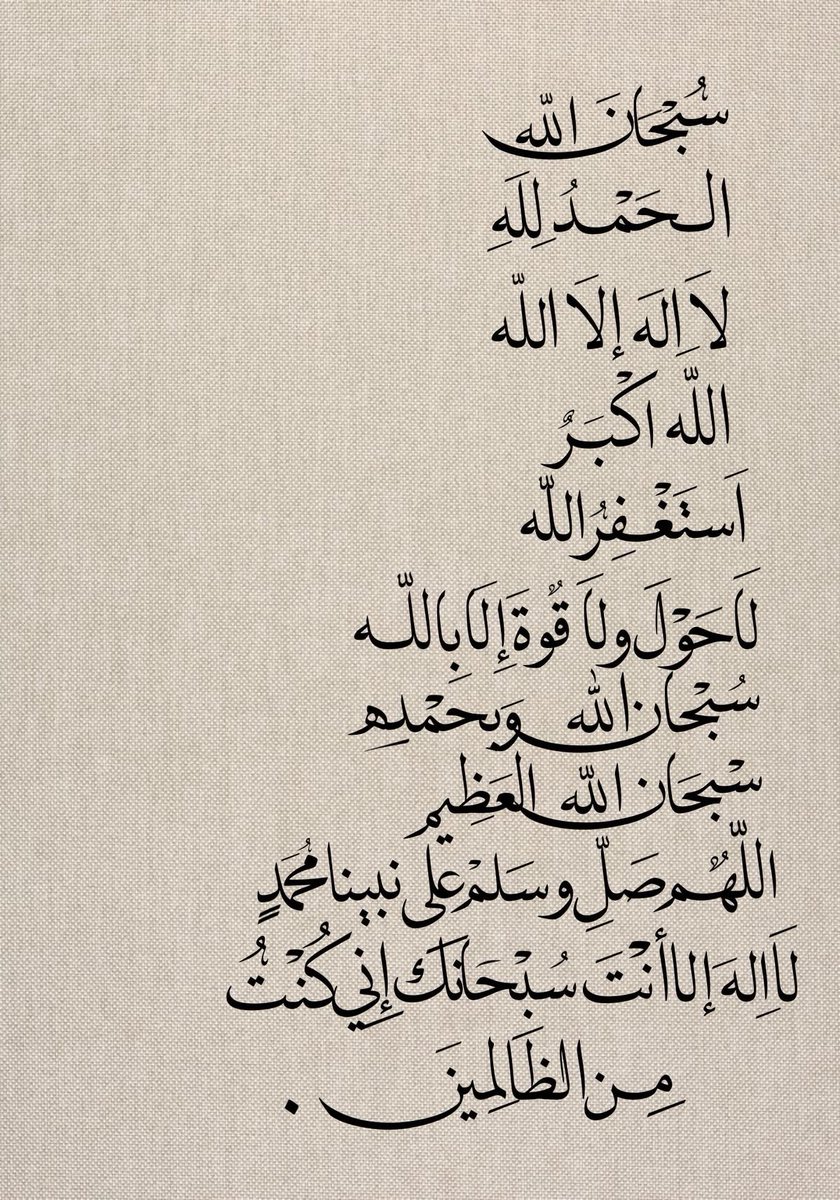 سُبْحَانَ اللّه
الـحَمْـدُ لِلَهِ
لاَ اِلَهَ إلاَ اللّه
اللّه اكْبَرُ
اَستَغْـفِرُ اللّه
لَا حَوْلَ ولاَ قُوةَ إِلَا بِاللّـه
سُبْحان اللّه وَبحَمْدِه
سْبحَانَ اللّه العَظِيم
اللّهُم صَلِّ وسَلمْ على نبينا محُمَدٍ
لَا اِلهَ إلا أنْتَ سُبْحَانَكَ إِنِي كُنْتُ
مِن الظَالِمينَ .